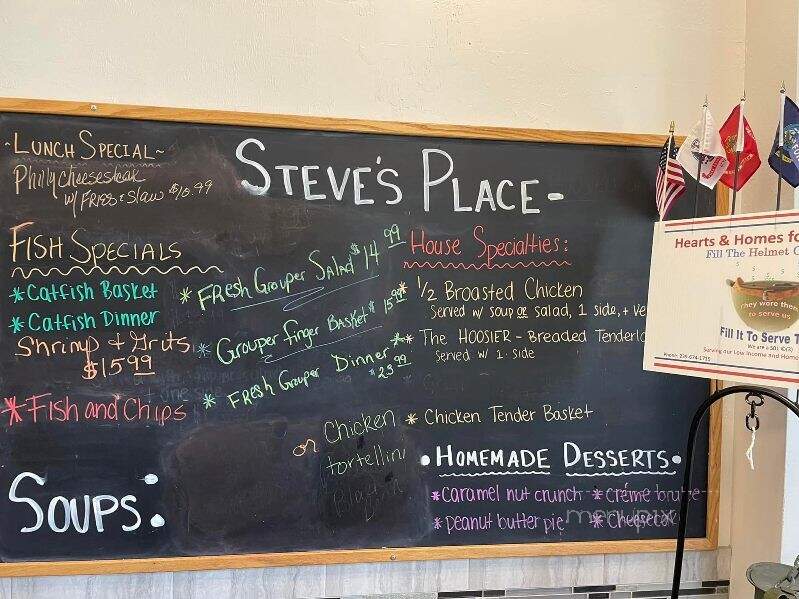 ~LUNCH SPECIAL~
Philly cheesesteak
w/ FRIES & Slaw
STEVE'S PLACE-
FISH SPECIALS
*Catfish Basket
*Catfish Dinner
Shrimp & Grits
$15.99
*Fish and Chips
*FRESH Grouper Salad $14.99
*Grouper finger Basket $15.99
*FRESH Grouper Dinner
$23.99
House Specialties:
*1/2 Broasted Chicken
Served w/ soup or salad, 1 side, + ve
*The HOOSIER - Breaded Tenderlo
Served w/ 1 side
*Chicken Tender Basket
SOUPS:
or Chicken
tortellini
•HOMEMADE DESSERTS•
*caramel nut crunch
*créme brule
*peanut butter pie
*cheeseca
Hearts & Homes fo
Fill The Helmet C
They were there
to serve us
Fill It To Serve T
We are a 501 (C)(3)
Serving our Low Income and Home
Phone: 239-674-1715
menupix